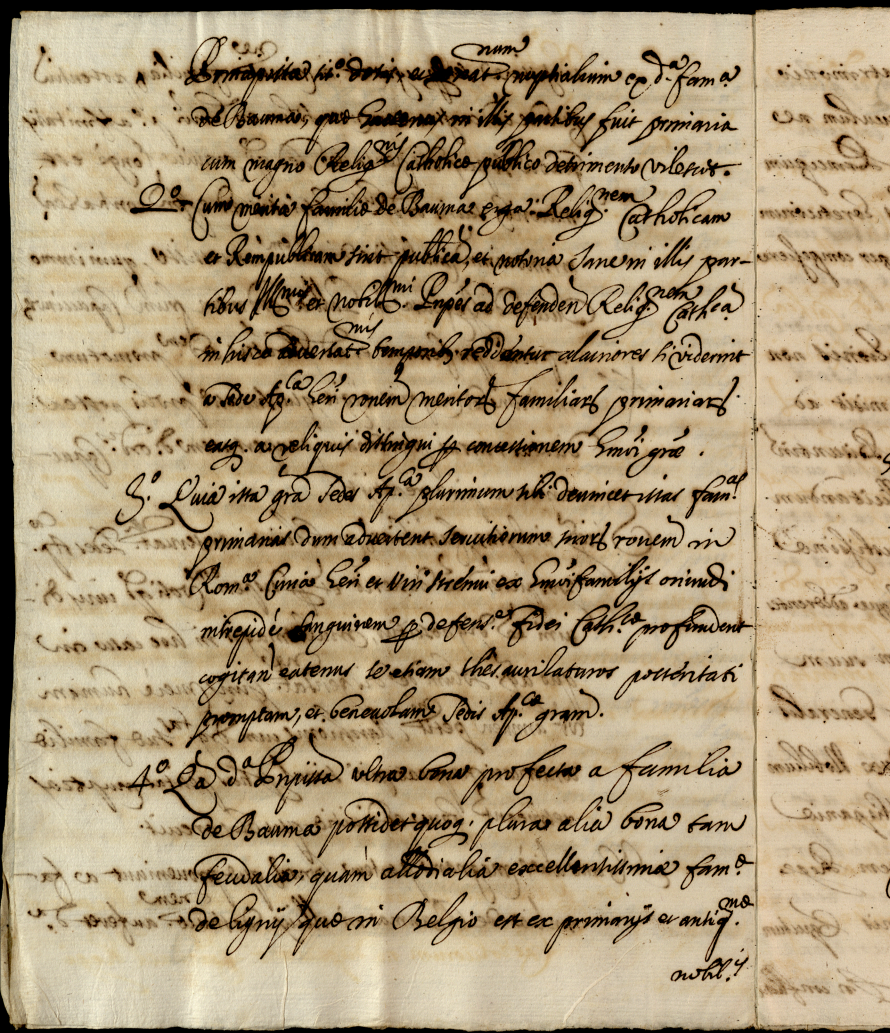 Principissa tit.o dotis, et donat.num nuptialium ex d.a fam.a
de Bauma, quae hactenus in illis partibus fuit primaria
cum magno Relig.nis Catholicae publico detrimento vilescit.
2.o Cum merita familiae de Bauma erga Relig.nem Catholicam
et Rempublicam sint publica, et notoria sane in illis par-
tibus Ill.mi et nobil.mi Pnp̃es ad defendeñ Relig.nem Cathcã
in hisce adversat.nis temporib. reddentur alacriores si viderint
a Sede Ap.ca heri ronem meritor. familiar. primariar.
easq. a reliquis distingui p concessionem hmõi grae.
3.o Quia ista gra Sedes Ap.ca plurimum sibi devinciet istas fam.as
primarias dum advertent servitiorum suor. ronem in
Rom.a Curia heri et Viri strenui ex hmõi familijs oriundi
intrepidè sanguinem p defens.e fidei Cath.cae profundent
cogitañ eatenus se etiam thesaurilaturos posteritati
promptam, et benevolam Sedis Ap.cae gram.
4.o Qa d.a Pnpissa ultra bona profecta a familia
de Bauma possidet quoq. plura alia bona tam
feudalia, quam allodialia excellentissimae fam.e
de Ligny, quae in Belgio est ex primarijs et antiq.mae
nobil.is